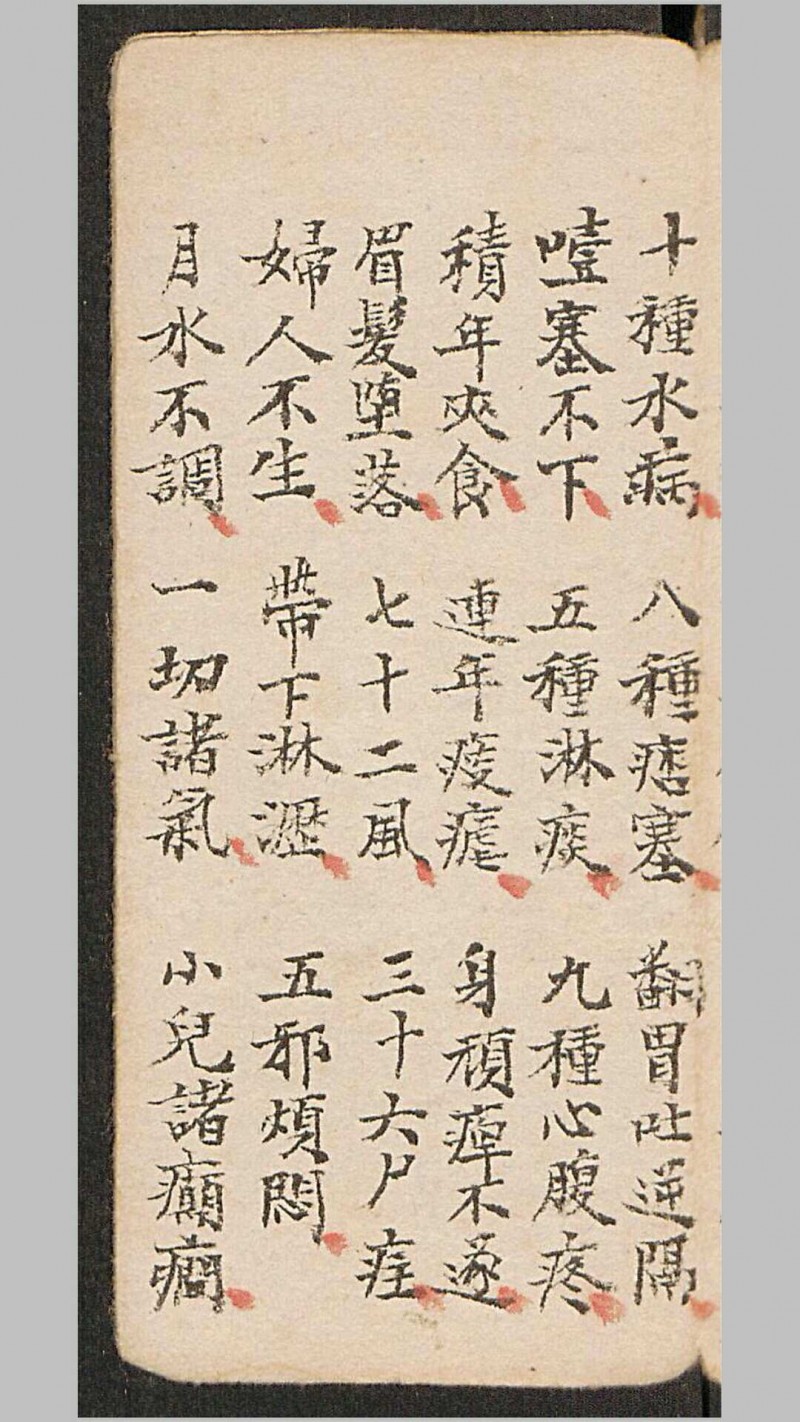 十種水病 八種痞塞 翻胃吐逆隔
噎塞不下 五種淋痰 九種心腹疼
積年夾食 連年痎瘧 身頑痺不遂
眉髮墮落 七十二風 三十六尸疰
婦人不生 帶下淋瀝 五邪煩悶
月水不調 一切諸氣 小兒諸癲癇